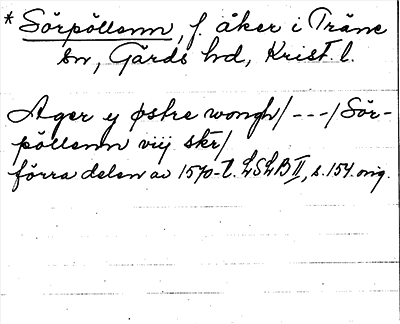 * Sörpöllenn, f. åker i Träne
sn, Gärds hd, Krist. l.
Ager y østre wongh/ ---/ Sör-
pöllenn viij skr/
förra delen av 1570-t. LSLB II, s. 154. orig.